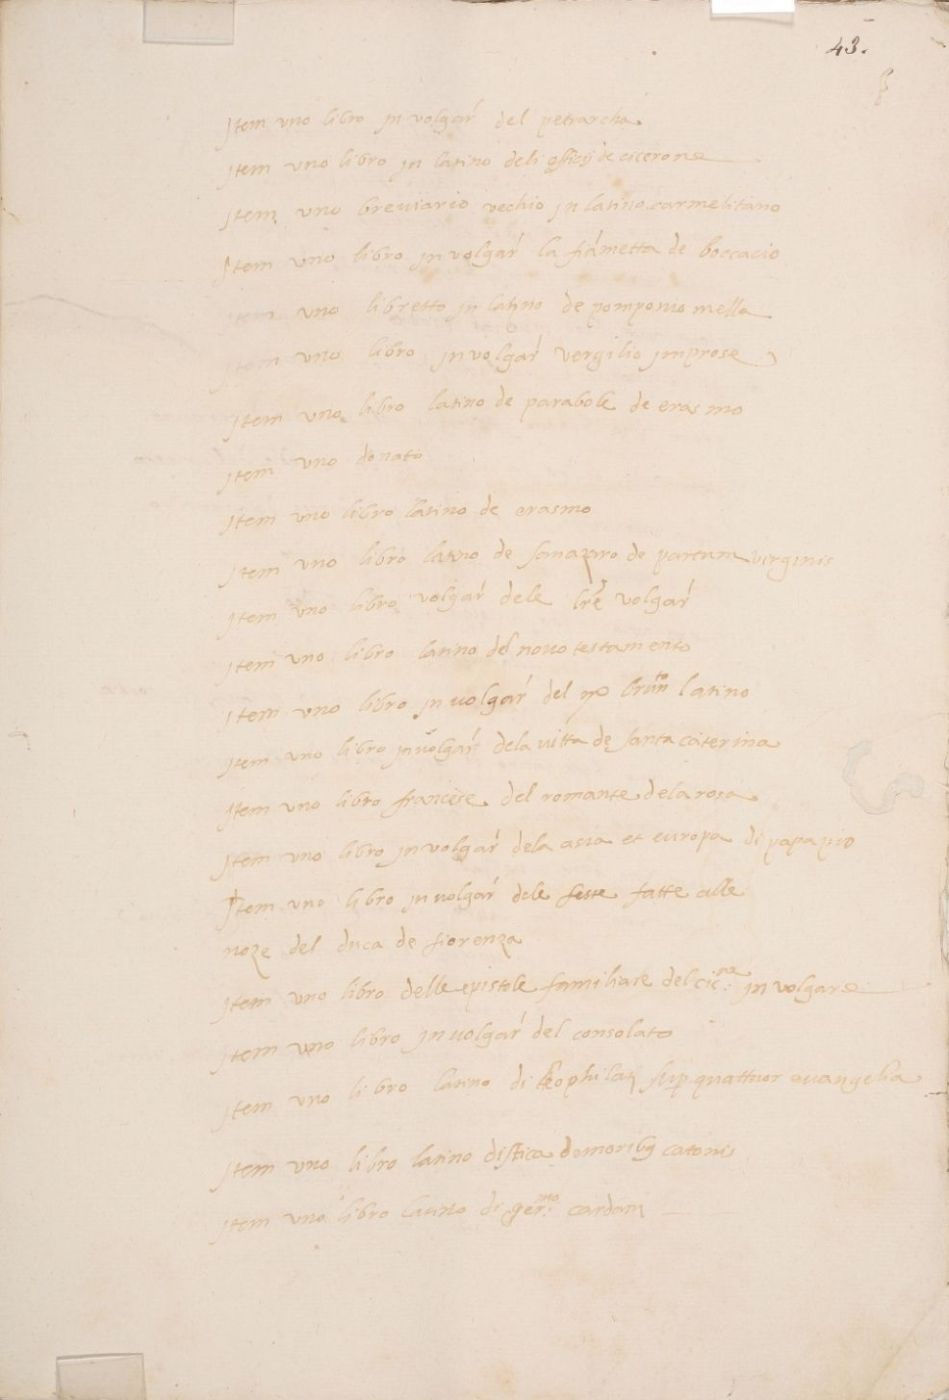 43.
Item uno libro in volgar' del petrarcha
Item uno libro in latino deli officij de cicerone
Item uno breviario vechio in latino carmelitano
Item uno libro in volgar' la fiámetta de boccacio
Item uno libretto in latino de pomponio mella
Item uno libro in volgar' vergilio improse
Item uno libro latino de parabole de erasmo
Item uno donato
Item uno libro latino de erasmo
Item uno libro latino de sanazaro de partum verginis
Item uno libro volgar' dele lre volgar'
Item uno libro latino del novo testamento
Item uno libro in volgar' del latino
Item uno libro in volgar' dela vitta de santa caterina
Item uno libro francese del romante dela rosa
Item uno libro in volgar' dela asia et europa di papa pio
Item uno libro in volgar' dele feste fatte alle
noze del duca de fiorenza
Item uno libro delle epistole familiare del cic.ne in volgare
Item uno libro in volgar' del consolato
Item uno libro latino di sup quattuor evangelia
Item uno libro latino distica de moribus catonis
Item uno libro latino di cardani